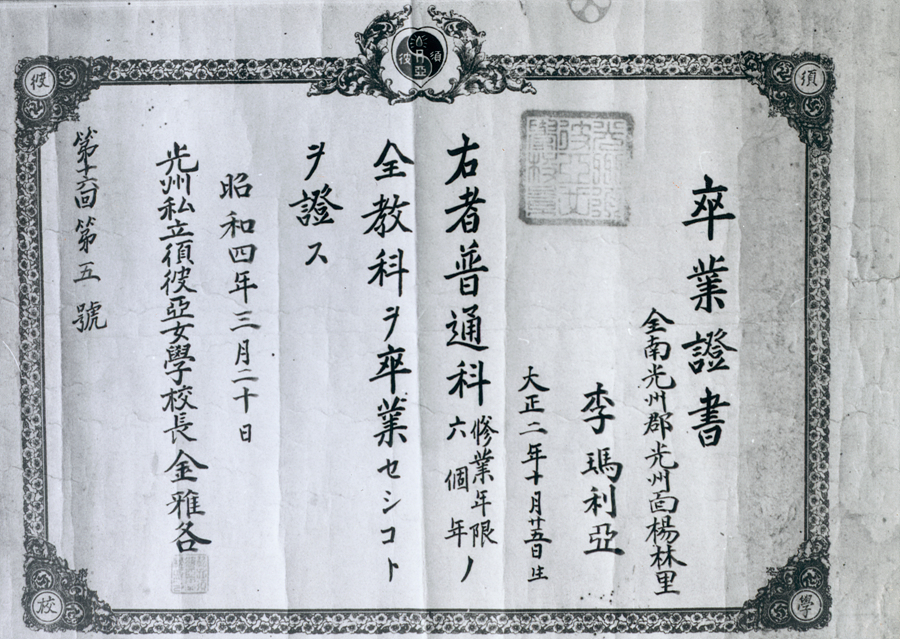 卒業證書
全南光州郡光州面楊林里
李瑪利亞
大正二年十月廿五日生
右者普通科修業年限六個年ノ
全教科ヲ卒業セシコト
ヲ證ス
昭和四年三月二十日
光州私立須彼亞女學校長金雅各
第十六回第五號
須
彼
學
校